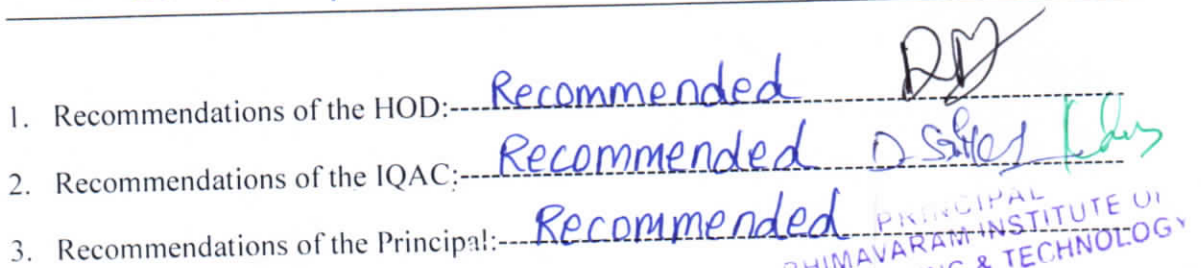 1. Recommendations of the HOD:----Recommended
2. Recommendations of the IQAC:----Recommended
3. Recommendations of the Principal:----Recommended
PRINCIPAL
BHIMAVARAM INSTITUTE OF
& TECHNOLOGY